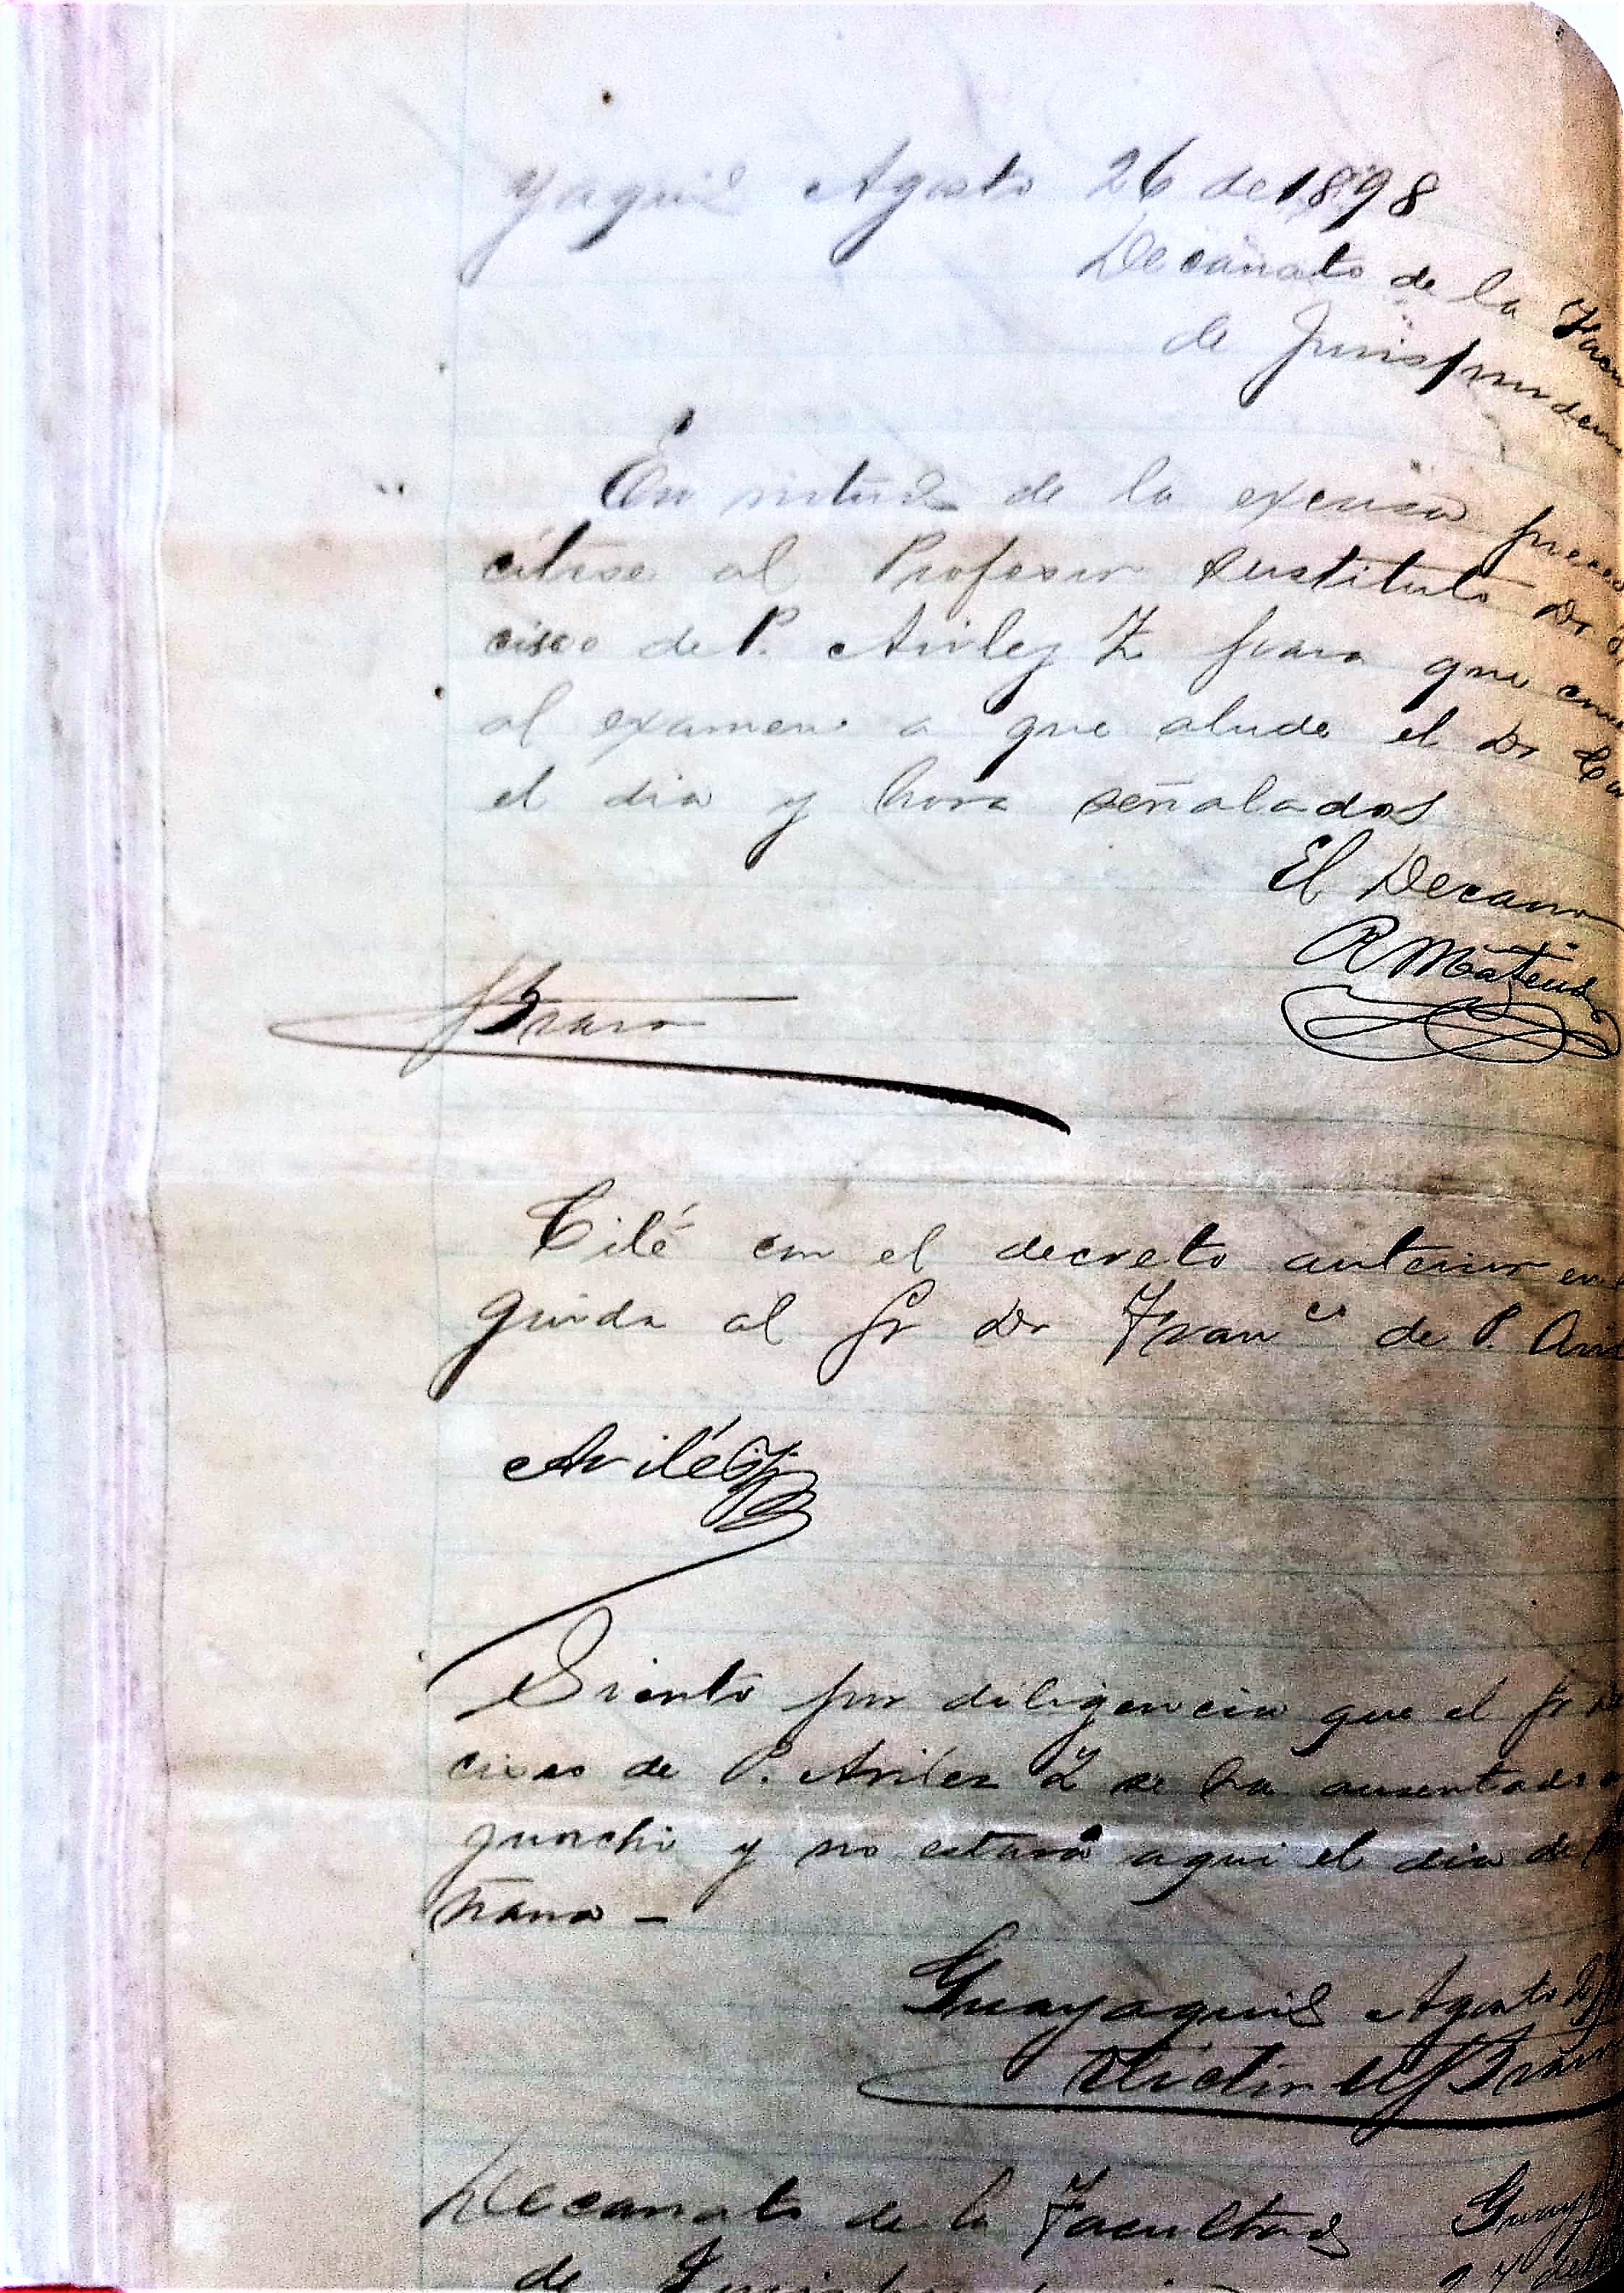 yaquil Agosto 26 de 1898
Decanato de la Facu
de Jurisprudenc
En virtud de la excusa
cítese al Profesor sustituto Dr
cisco de P. Aviles Z para que
al examen a que alude el Dr
el dia y hora señalados
El Decano
R Mateus
Bravo
Cité con el decreto anterior en
guida al Sr Dr Franco de P. Avi
Avilés Z
Siento por diligencia que el Sr
cisco de P. Aviles Z se ha ausentado
y no estará aqui el dia de
ñana -
Guayaquil Agosto
Victor M Bravo
Decanato de la Facultad Guay
de